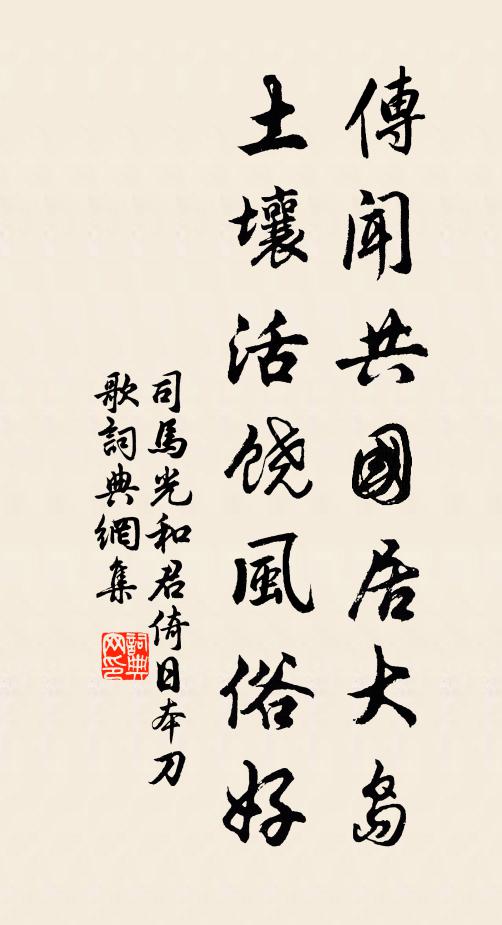 傳聞共國居大島
土壤活饒風俗好
司馬光和君倚日本刀
歌詞典網集
詞典
网印